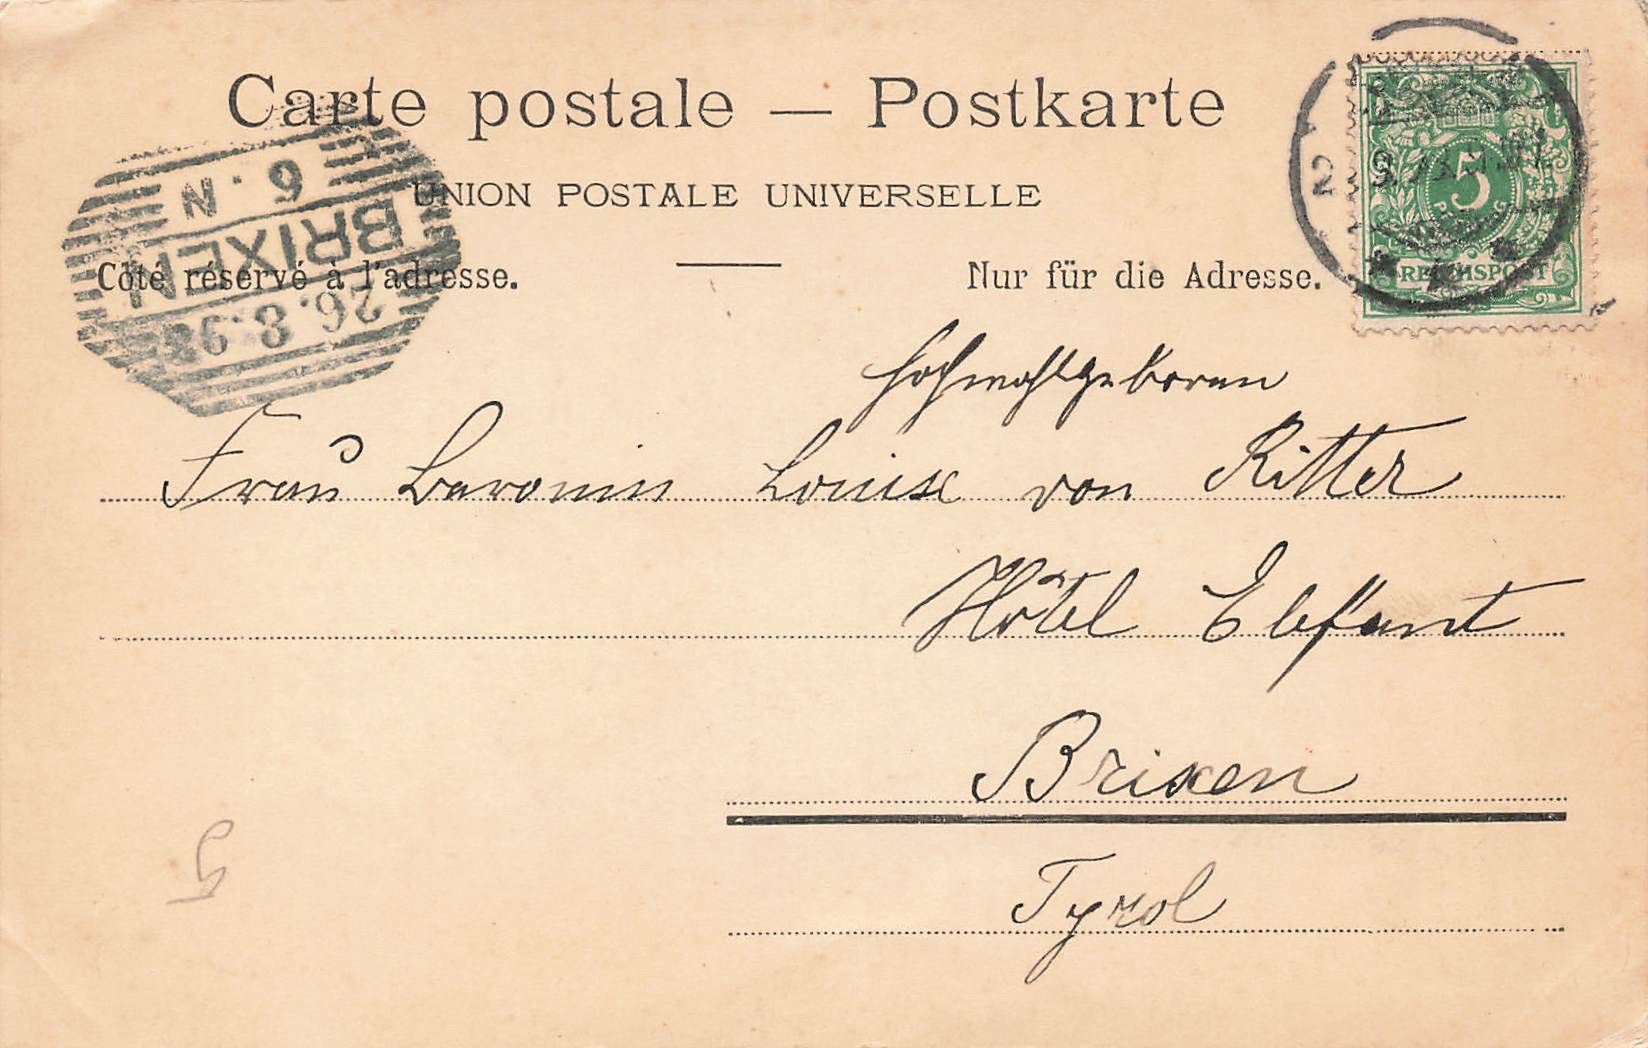 Carte postale — Postkarte
UNION POSTALE UNIVERSELLE
Côté réservé à l'adresse.
Nur für die Adresse.
6. N
BRIXEN
26. 8. 98
5
REICHSPOST
Hochwohlgeboren
Frau Baronin Louise von Ritter
Hôtel Elefant
Brixen
Tyrol
5